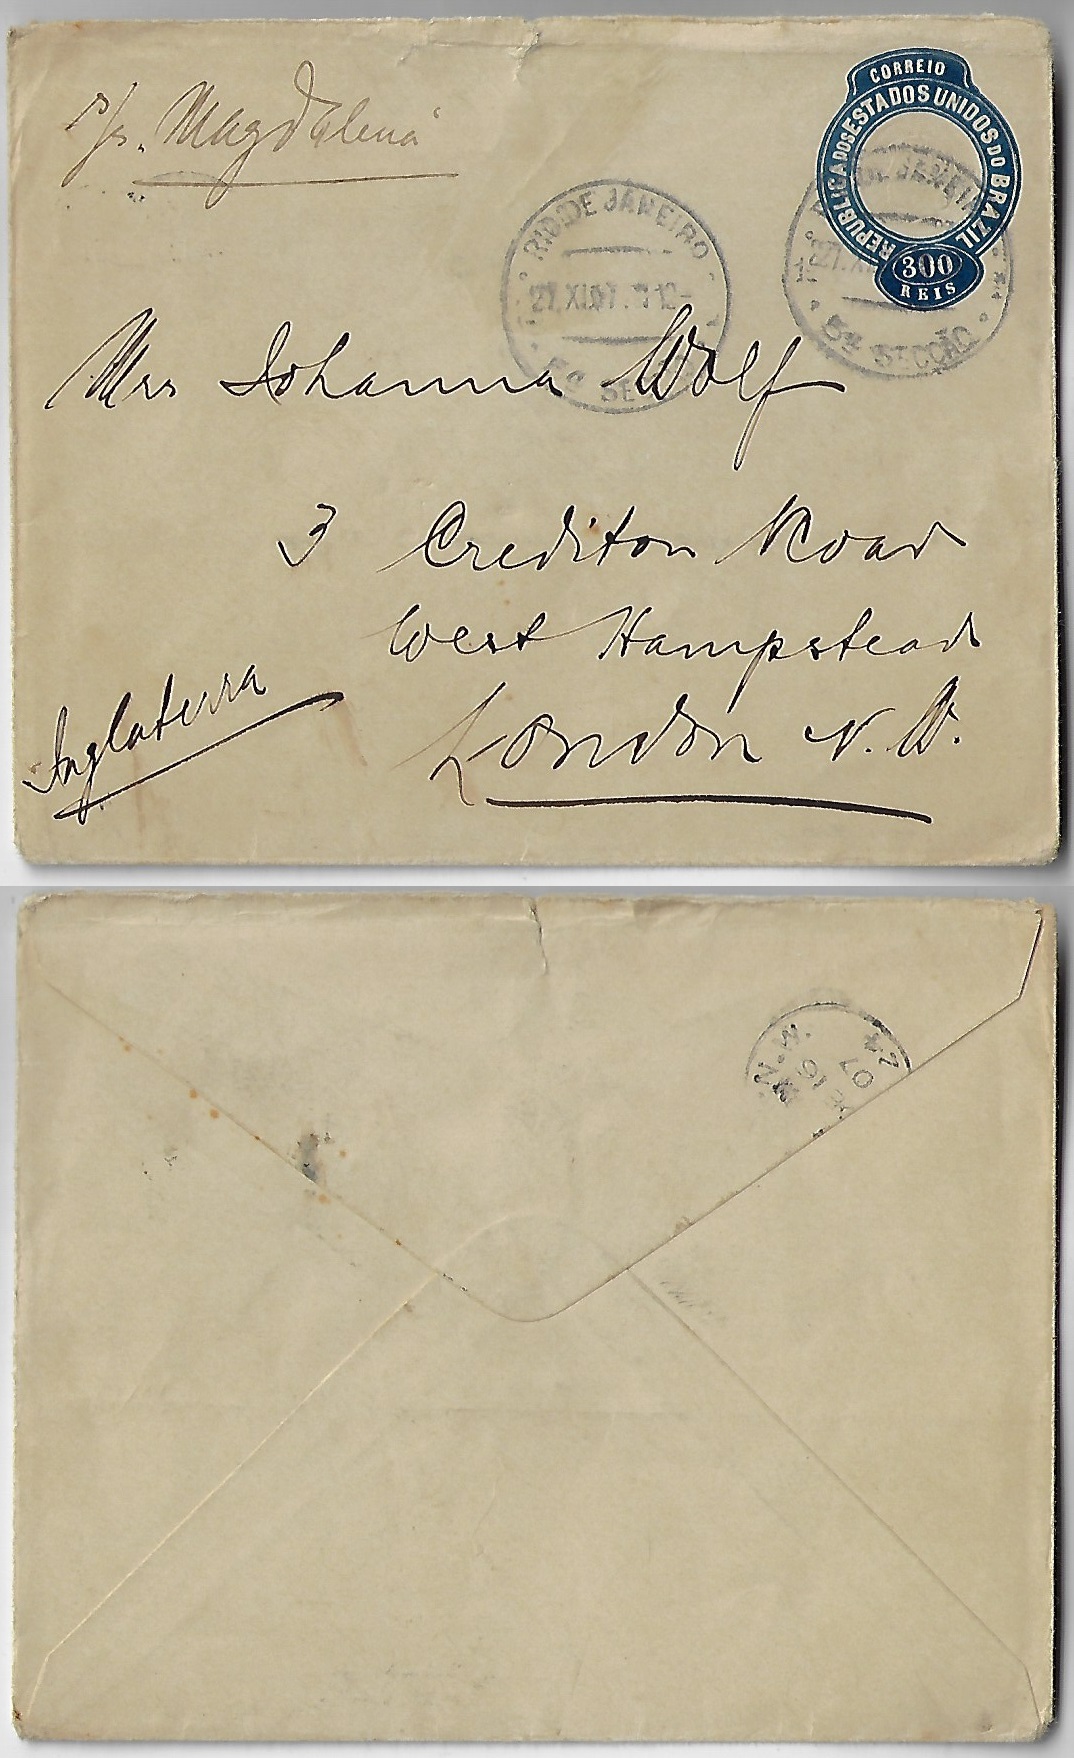 p/s. "Magdalena"
CORREIO
REPUBLICA DOS ESTADOS UNIDOS DO BRAZIL
300
REIS
RIO DE JANEIRO
27.XI.07. 12-
5ª SEC
JANEIRO
27.XI
5ª SECÇÃO
Mrs Johanna Wolf
3 Crediton Road
West Hampstead
London N. W.
Inglaterra
N.W.
16
07